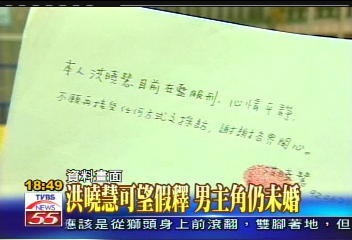 本人洪曉慧目前在監服刑,心情平靜,
不願再接受任何方式之採訪,謝謝指界關心。
資料畫面
18:49
TVBS
NEWS
55
洪曉慧可望假釋 男主角仍未婚
應該是從獅頭身上前滾翻,雙腳著地,但